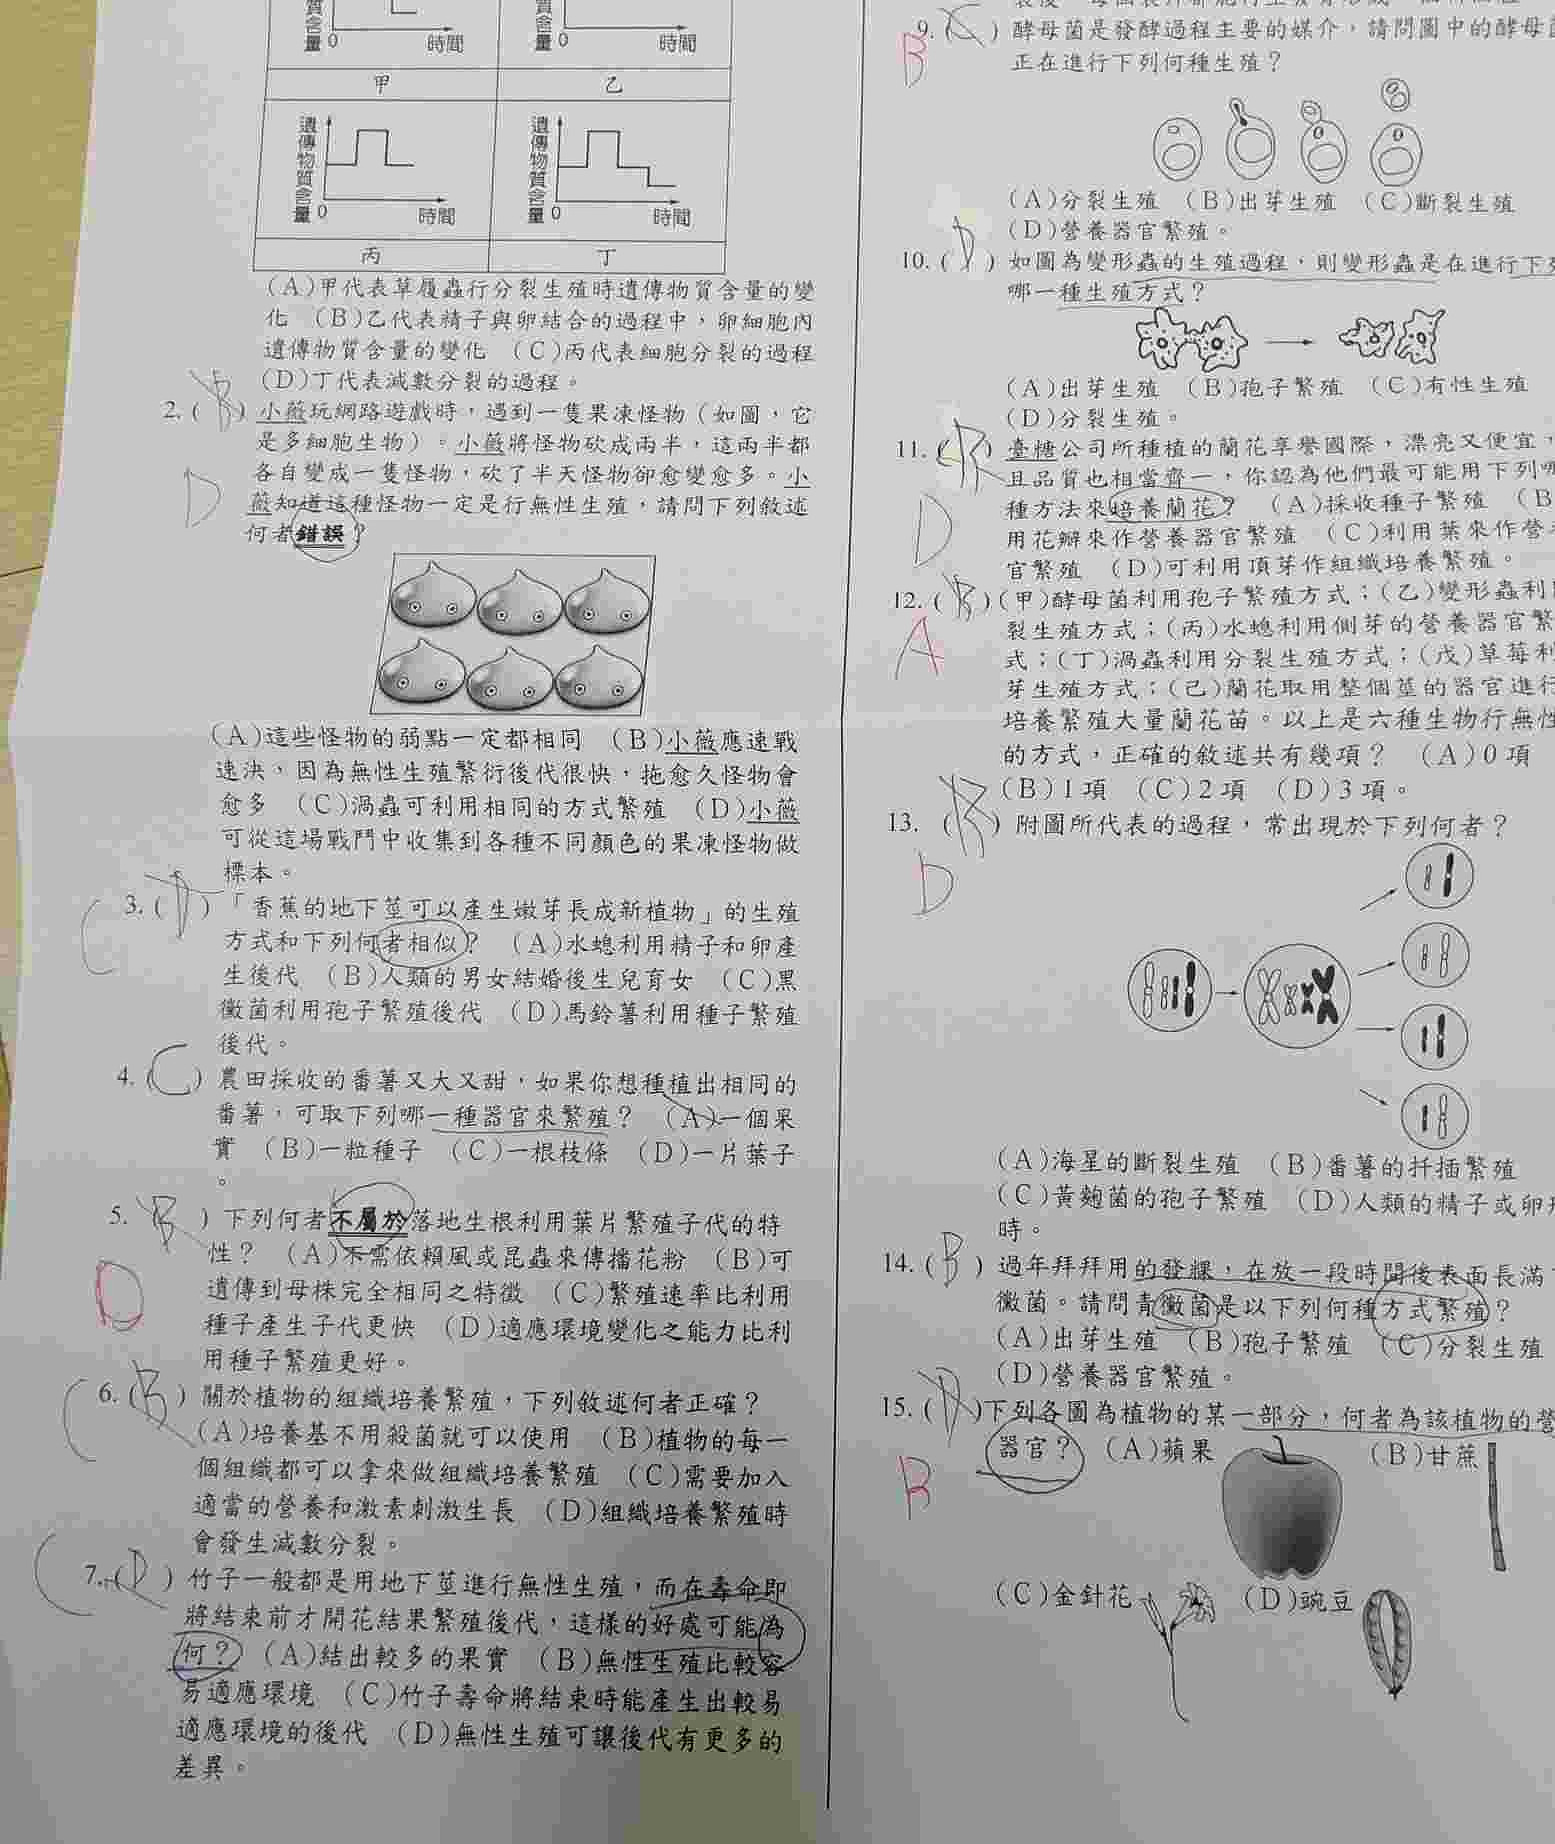 質含量 0 時間
質含量 0 時間
甲 乙
遺傳物質含量 0 時間
遺傳物質含量 0 時間
丙 丁
(A)甲代表草履蟲行分裂生殖時遺傳物質含量的變
化 (B)乙代表精子與卵結合的過程中，卵細胞內
遺傳物質含量的變化 (C)丙代表細胞分裂的過程
(D)丁代表減數分裂的過程。
2. (B) 小薇玩網路遊戲時，遇到一隻果凍怪物（如圖，它
是多細胞生物）。小薇將怪物砍成兩半，這兩半都
各自變成一隻怪物，砍了半天怪物卻愈變愈多。小
D
薇知道這種怪物一定是行無性生殖，請問下列敘述
何者錯誤？
(A)這些怪物的弱點一定都相同 (B)小薇應速戰
速決，因為無性生殖繁衍後代很快，拖愈久怪物會
愈多 (C)渦蟲可利用相同的方式繁殖 (D)小薇
可從這場戰鬥中收集到各種不同顏色的果凍怪物做
標本。
C
3. (D) 「香蕉的地下莖可以產生嫩芽長成新植物」的生殖
方式和下列何者相似？ (A)水螅利用精子和卵產
生後代 (B)人類的男女結婚後生兒育女 (C)黑
黴菌利用孢子繁殖後代 (D)馬鈴薯利用種子繁殖
後代。
4. (C) 農田採收的番薯又大又甜，如果你想種植出相同的
番薯，可取下列哪一種器官來繁殖？ (A)一個果
實 (B)一粒種子 (C)一根枝條 (D)一片葉子
。
5. (B) 下列何者不屬於落地生根利用葉片繁殖子代的特
性？ (A)不需依賴風或昆蟲來傳播花粉 (B)可
D
遺傳到母株完全相同之特徵 (C)繁殖速率比利用
種子產生子代更快 (D)適應環境變化之能力比利
用種子繁殖更好。
C
6. (B) 關於植物的組織培養繁殖，下列敘述何者正確？
(A)培養基不用殺菌就可以使用 (B)植物的每一
個組織都可以拿來做組織培養繁殖 (C)需要加入
適當的營養和激素刺激生長 (D)組織培養繁殖時
會發生減數分裂。
C
7. (D) 竹子一般都是用地下莖進行無性生殖，而在壽命即
將結束前才開花結果繁殖後代，這樣的好處可能為
何？ (A)結出較多的果實 (B)無性生殖比較容
易適應環境 (C)竹子壽命將結束時能產生出較易
適應環境的後代 (D)無性生殖可讓後代有更多的
差異。
9. (C) 酵母菌是發酵過程主要的媒介，請問圖中的酵母
B
正在進行下列何種生殖？
(A)分裂生殖 (B)出芽生殖 (C)斷裂生殖
(D)營養器官繁殖。
10. (D) 如圖為變形蟲的生殖過程，則變形蟲是在進行下
哪一種生殖方式？
(A)出芽生殖 (B)孢子繁殖 (C)有性生殖
(D)分裂生殖。
11. (B) 臺糖公司所種植的蘭花享譽國際，漂亮又便宜，
且品質也相當齊一，你認為他們最可能用下列哪
D
種方法來培養蘭花？ (A)採收種子繁殖 (B
用花瓣來作營養器官繁殖 (C)利用葉來作營
官繁殖 (D)可利用頂芽作組織培養繁殖。
12. (B) (甲)酵母菌利用孢子繁殖方式；(乙)變形蟲利
A
裂生殖方式；(丙)水螅利用側芽的營養器官繁
式；(丁)渦蟲利用分裂生殖方式；(戊)草莓利
芽生殖方式；(己)蘭花取用整個莖的器官進行
培養繁殖大量蘭花苗。以上是六種生物行無性
的方式，正確的敘述共有幾項？ (A)0 項
(B)1 項 (C)2 項 (D)3 項。
13. (B) 附圖所代表的過程，常出現於下列何者？
D
(A)海星的斷裂生殖 (B)番薯的扦插繁殖
(C)黃麴菌的孢子繁殖 (D)人類的精子或卵
時。
14. (B) 過年拜拜用的發粿，在放一段時間後表面長滿
黴菌。請問青黴菌是以下列何種方式繁殖？
(A)出芽生殖 (B)孢子繁殖 (C)分裂生殖
(D)營養器官繁殖。
15. (D) 下列各圖為植物的某一部分，何者為該植物的營
器官？ (A)蘋果 (B)甘蔗
B
(C)金針花 (D)豌豆